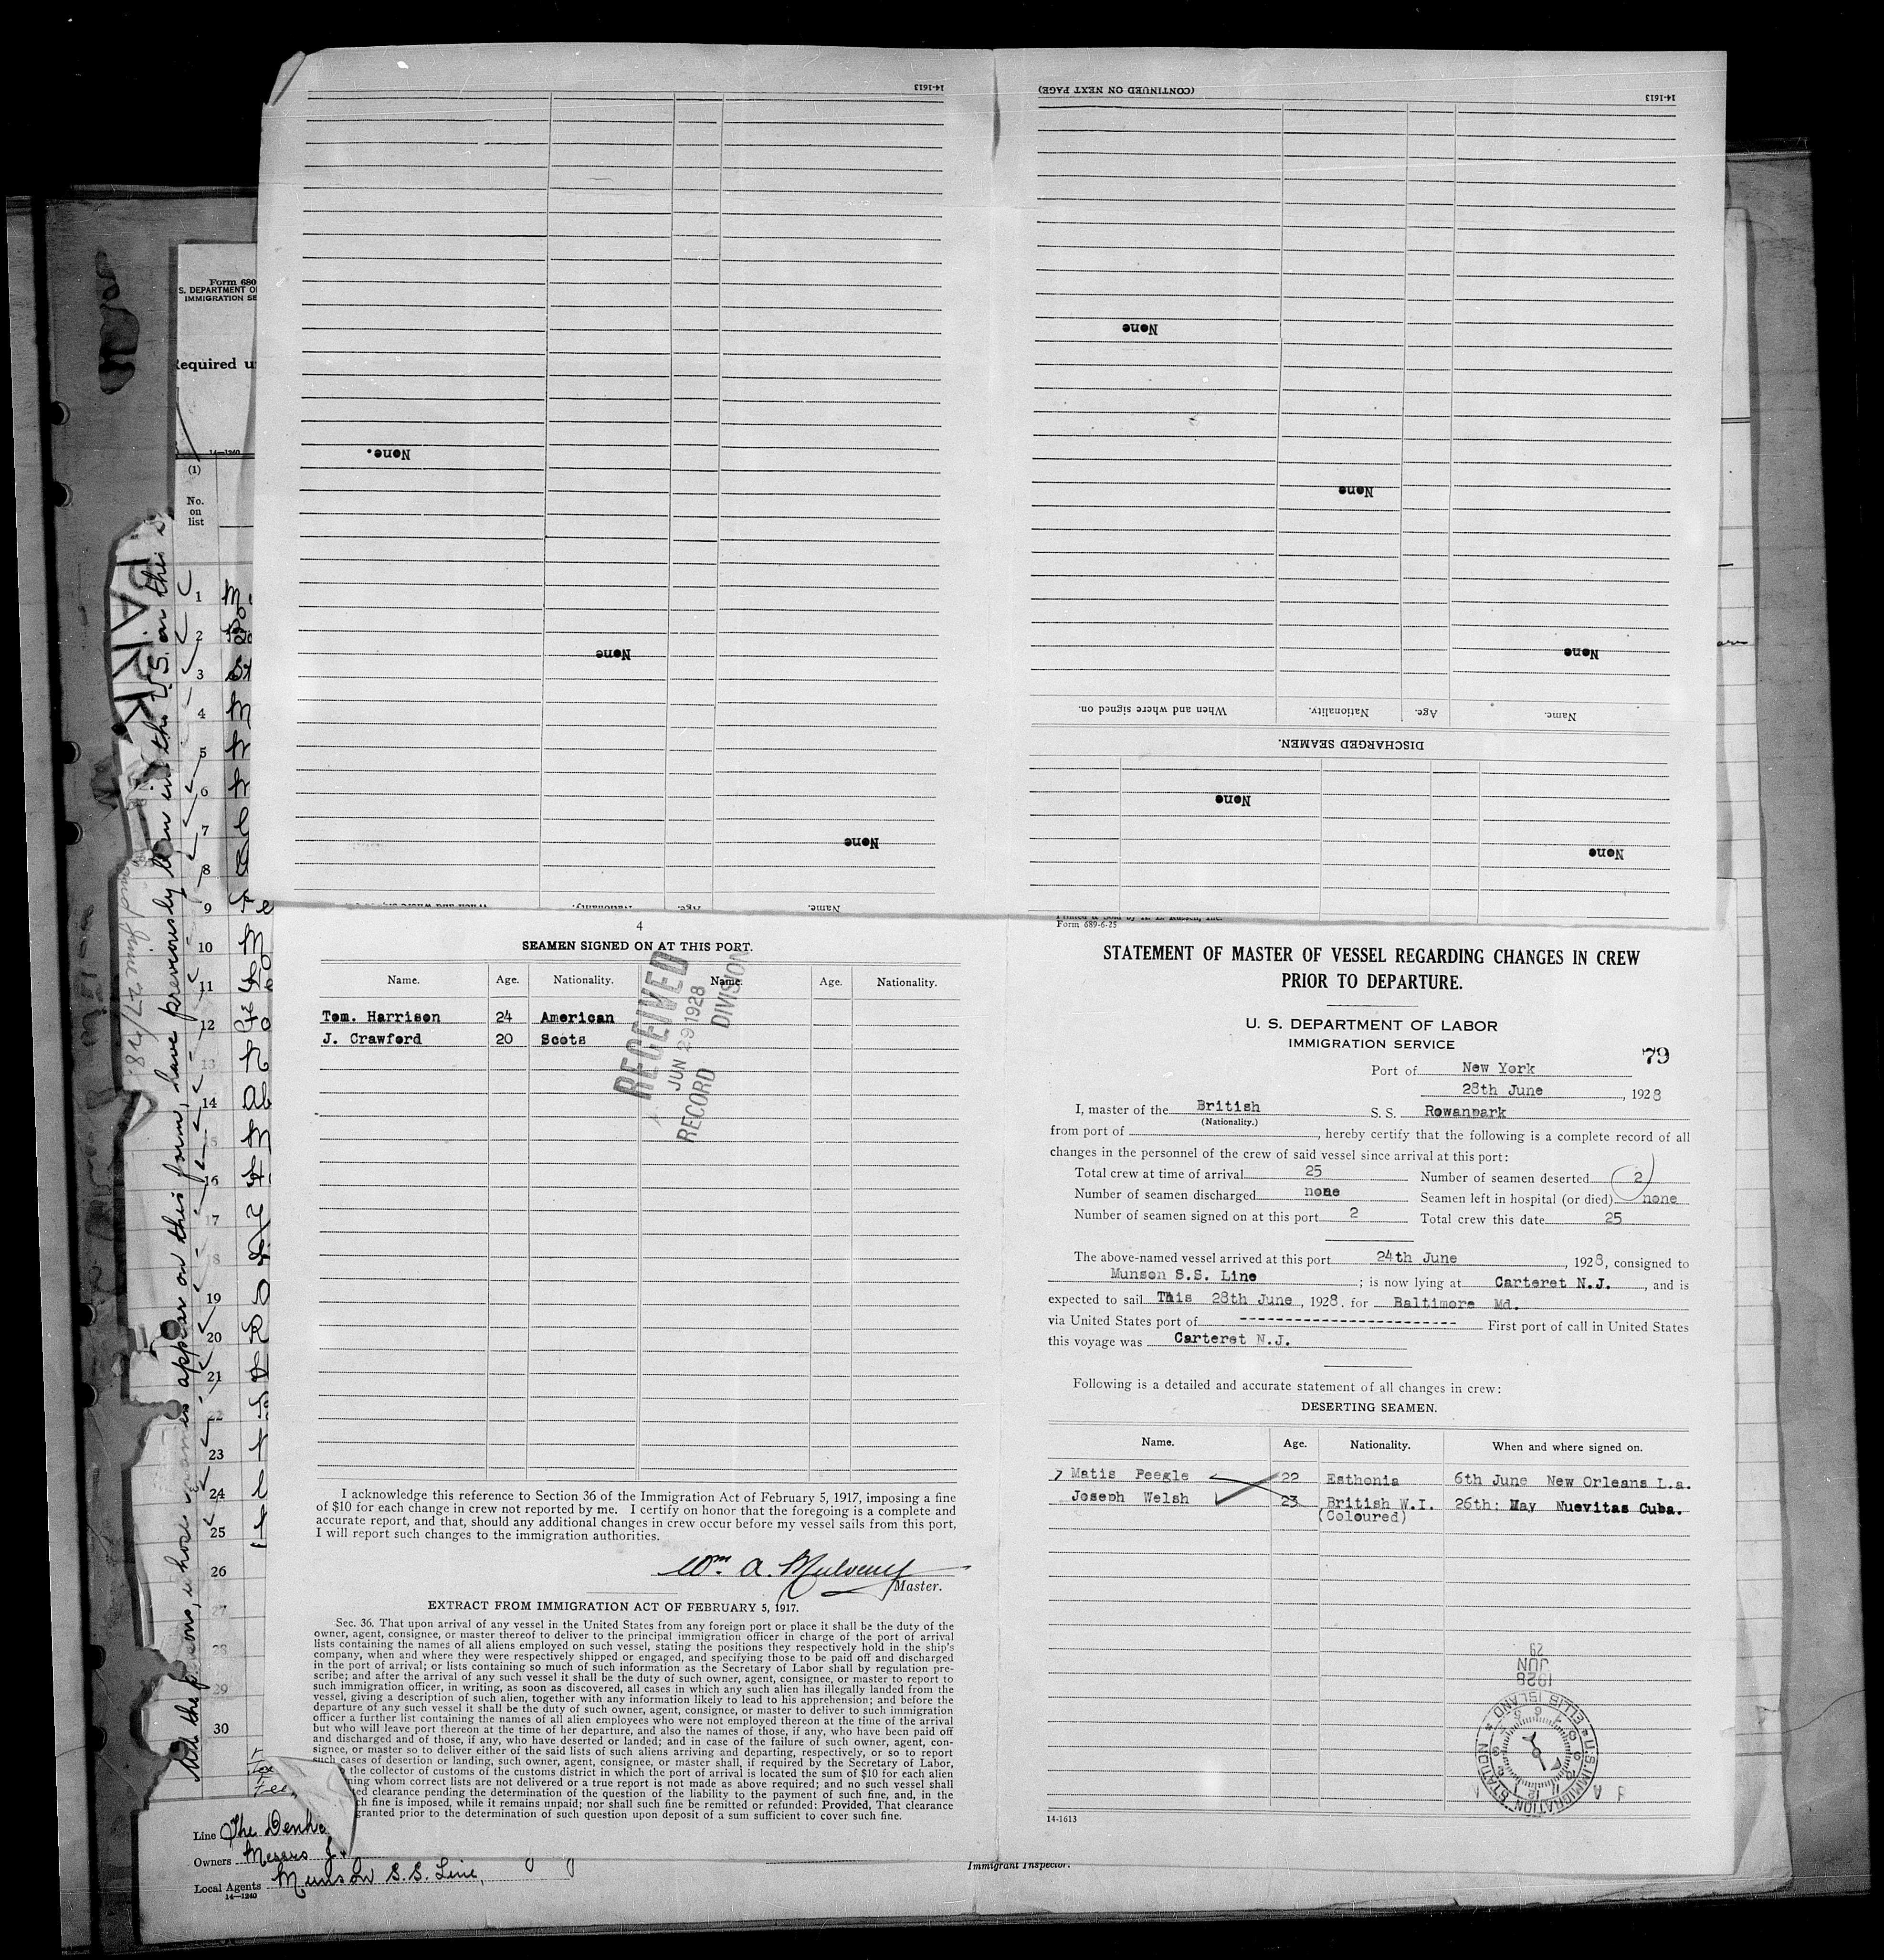 14-1613
None.
None
None
Name.
Age.
Nationality.
When and where signed on
14-1613
(CONTINUED ON NEXT PAGE)
None
None
None
Name.
Age.
Nationality.
When and where signed on.
DISCHARGED SEAMEN.
None
None
Form 680
S. DEPARTMENT O
IMMIGRATION SE
Required u
14—1240
(1)
No.
on
list
1
2
3
4
5
6
7
8
9
10
11
12
13
14
15
16
17
18
19
20
21
22
23
24
25
26
27
28
29
30
PARK
persons, whose names appear on this form, have previously been in the U.S. on this
4
SEAMEN SIGNED ON AT THIS PORT.
Name. Age. Nationality. Name. Age. Nationality.
Tom. Harrison 24 American
J. Crawford 20 Scots
RECEIVED
JUN 29 1928
RECORD DIVISION
I acknowledge this reference to Section 36 of the Immigration Act of February 5, 1917, imposing a fine
of $10 for each change in crew not reported by me. I certify on honor that the foregoing is a complete and
accurate report, and that, should any additional changes in crew occur before my vessel sails from this port,
I will report such changes to the immigration authorities.
Wm. A. Mulveny
Master.
EXTRACT FROM IMMIGRATION ACT OF FEBRUARY 5, 1917.
Sec. 36. That upon arrival of any vessel in the United States from any foreign port or place it shall be the duty of the
owner, agent, consignee, or master thereof to deliver to the principal immigration officer in charge of the port of arrival
lists containing the names of all aliens employed on such vessel, stating the positions they respectively hold in the ship's
company, when and where they were respectively shipped or engaged, and specifying those to be paid off and discharged
in the port of arrival; or lists containing so much of such information as the Secretary of Labor shall by regulation pre-
scribe; and after the arrival of any such vessel it shall be the duty of such owner, agent, consignee, or master to report to
such immigration officer, in writing, as soon as discovered, all cases in which any such alien has illegally landed from the
vessel, giving a description of such alien, together with any information likely to lead to his apprehension; and before the
departure of any such vessel it shall be the duty of such owner, agent, consignee, or master to deliver to such immigration
officer a further list containing the names of all alien employees who were not employed thereon at the time of the arrival
but who will leave port thereon at the time of her departure, and also the names of those, if any, who have been paid off
and discharged and of those, if any, who have deserted or landed; and in case of the failure of such owner, agent, con-
signee, or master so to deliver either of the said lists of such aliens arriving and departing, respectively, or so to report
such cases of desertion or landing, such owner, agent, consignee, or master shall, if required by the Secretary of Labor,
the collector of customs of the customs district in which the port of arrival is located the sum of $10 for each alien
ning whom correct lists are not delivered or a true report is not made as above required; and no such vessel shall
ed clearance pending the determination of the question of the liability to the payment of such fine, and, in the
ch fine is imposed, while it remains unpaid; nor shall such fine be remitted or refunded: Provided, That clearance
granted prior to the determination of such question upon deposit of a sum sufficient to cover such fine.
Line The Denh
Owners Messrs J.
Local Agents Munson S.S. Line,
14—1240
Immigrant Inspector.
Form 689-6-25
STATEMENT OF MASTER OF VESSEL REGARDING CHANGES IN CREW
PRIOR TO DEPARTURE.
U. S. DEPARTMENT OF LABOR
IMMIGRATION SERVICE
79
Port of New York
28th June, 1928
I, master of the British S. S. Rowanpark
(Nationality.)
from port of , hereby certify that the following is a complete record of all
changes in the personnel of the crew of said vessel since arrival at this port:
Total crew at time of arrival 25 Number of seamen deserted 2
Number of seamen discharged none Seamen left in hospital (or died) none
Number of seamen signed on at this port 2 Total crew this date 25
The above-named vessel arrived at this port 24th June, 1928, consigned to
Munson S.S. Line ; is now lying at Carteret N.J. , and is
expected to sail This 28th June, 1928. for Baltimore Md.
via United States port of -------------------- First port of call in United States
this voyage was Carteret N.J.
Following is a detailed and accurate statement of all changes in crew:
DESERTING SEAMEN.
Name. Age. Nationality. When and where signed on.
Matis Peegle 22 Esthonia 6th June New Orleans L.a.
Joseph Welsh 23 British W.I. 26th: May Nuevitas Cuba.
(Coloured)
1928
JUN
29
U.S. IMMIGRATION STATION ELLIS ISLAND
14-1613